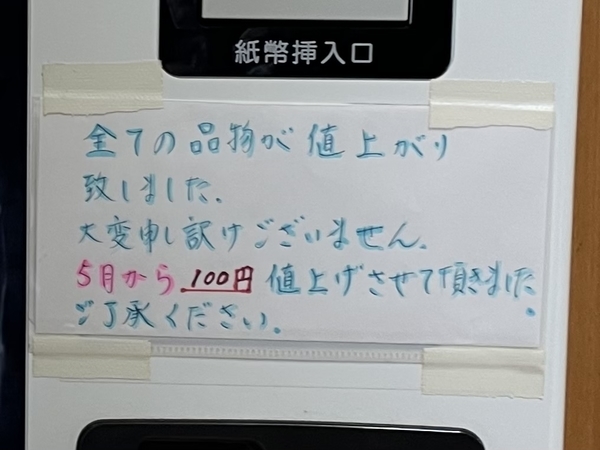 紙幣挿入口
全ての品物が値上がり
致しました.
大変申し訳けございません.
5月から 100円 値上げさせて頂きました.
ご了承ください.